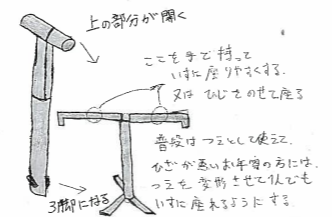 上の部分が開く
ここを手で持って
いすに座りやすくする。
又は ひじをのせて座る
普段はつえとして使えて、
ひざが悪いお年寄の方には、
つえを変形させて1人でも
いすに座れるようにする。
3脚になる